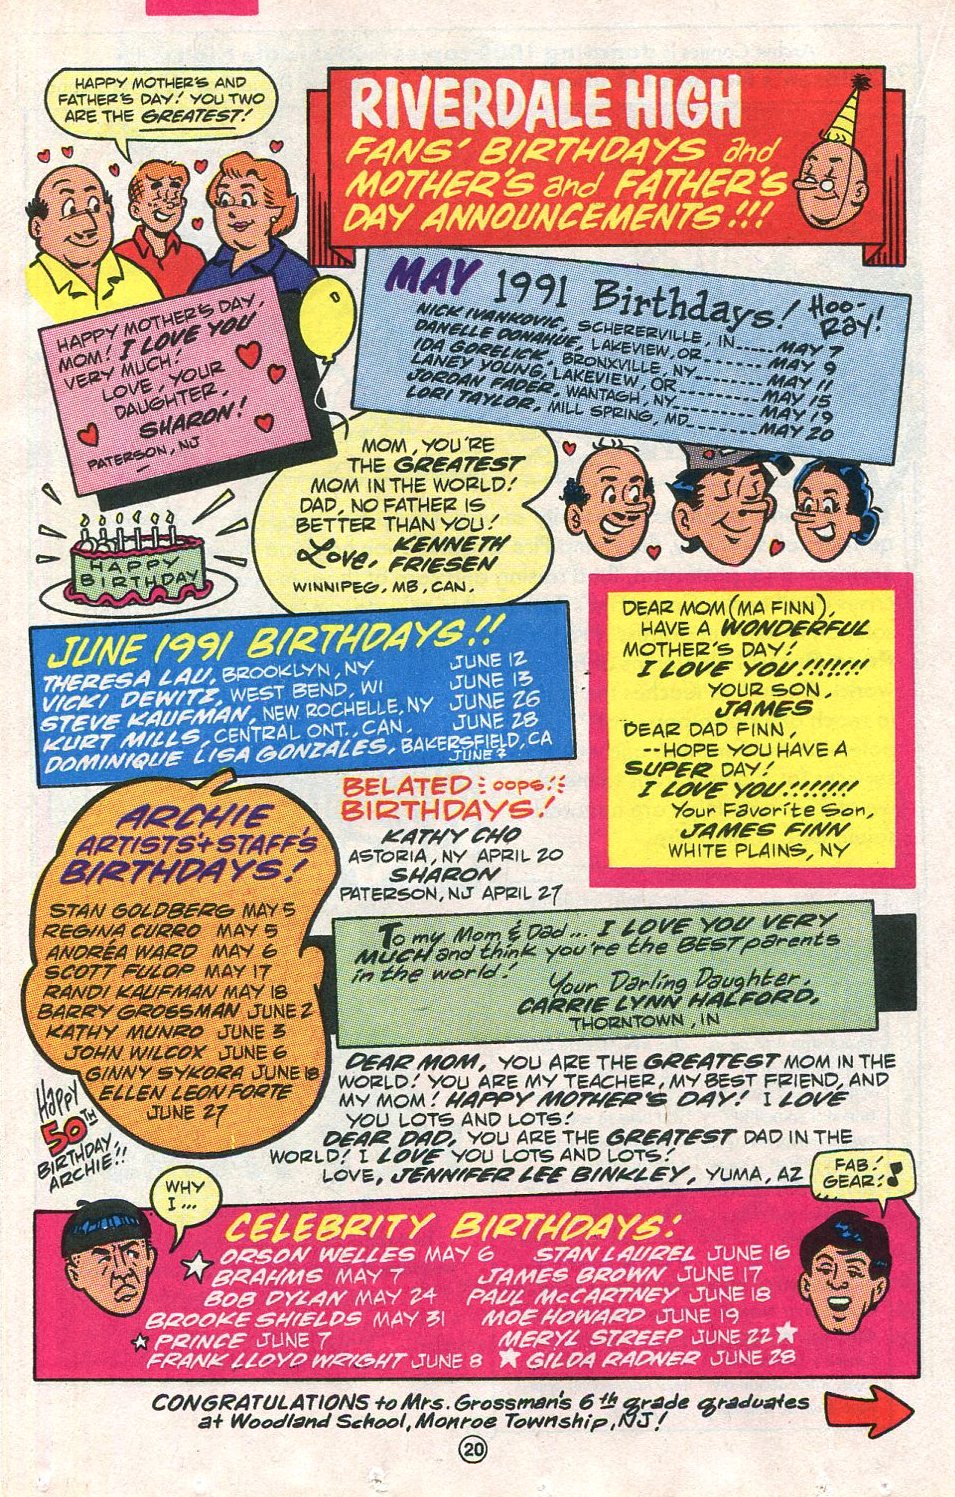 HAPPY MOTHER'S AND
FATHER'S DAY! YOU TWO
ARE THE GREATEST!
RIVERDALE HIGH
FANS' BIRTHDAYS and
MOTHER'S and FATHER'S
DAY ANNOUNCEMENTS!!!
HAPPY MOTHER'S DAY,
MOM! I LOVE YOU
VERY MUCH!
LOVE, YOUR
DAUGHTER,
SHARON!
PATERSON, NJ
MAY 1991 Birthdays! Hoo-
Ray!
NICK IVANKOVIC, SCHERERVILLE, IN.----- MAY 7
DANELLE DONAHUE, LAKEVIEW, OR---------- MAY 9
IDA GORELICK, BRONXVILLE, NY.--------- MAY 11
LANEY YOUNG, LAKEVIEW, OR---------- MAY 15
JORDAN FADER, WANTAGH, NY.--------- MAY 19
LORI TAYLOR, MILL SPRING, MD.-------- MAY 20
MOM, YOU'RE
THE GREATEST
MOM IN THE WORLD!
DAD, NO FATHER IS
BETTER THAN YOU!
Love, KENNETH
FRIESEN
WINNIPEG, MB, CAN.
HAPPY
BIRTHDAY
JUNE 1991 BIRTHDAYS!!
THERESA LAU, BROOKLYN, NY JUNE 12
VICKI DEWITZ, WEST BEND, WI JUNE 13
STEVE KAUFMAN, NEW ROCHELLE, NY JUNE 26
KURT MILLS, CENTRAL ONT., CAN. JUNE 28
DOMINIQUE LISA GONZALES, BAKERSFIELD, CA
JUNE 7
DEAR MOM (MA FINN),
HAVE A WONDERFUL
MOTHER'S DAY!
I LOVE YOU!!!!!!!
YOUR SON,
JAMES
DEAR DAD FINN,
--HOPE YOU HAVE A
SUPER DAY!
I LOVE YOU!!!!!!!
Your Favorite Son,
JAMES FINN
WHITE PLAINS, NY
BELATED oops!!
BIRTHDAYS!
KATHY CHO
ASTORIA, NY APRIL 20
SHARON
PATERSON, NJ APRIL 27
ARCHIE
ARTISTS' + STAFF'S
BIRTHDAYS!
STAN GOLDBERG MAY 5
REGINA CURRO MAY 5
ANDRÉA WARD MAY 6
SCOTT FULOP MAY 17
RANDI KAUFMAN MAY 18
BARRY GROSSMAN JUNE 2
KATHY MUNRO JUNE 3
JOHN WILCOX JUNE 6
GINNY SYKORA JUNE 18
ELLEN LEONFORTE
JUNE 27
Happy
50TH
BIRTHDAY,
ARCHIE!!
To my Mom & Dad... I LOVE YOU VERY
MUCH and think you're the BEST parents
in the world!
Your Darling Daughter,
CARRIE LYNN HALFORD,
THORNTOWN, IN
DEAR MOM, YOU ARE THE GREATEST MOM IN THE
WORLD! YOU ARE MY TEACHER, MY BEST FRIEND, AND
MY MOM! HAPPY MOTHER'S DAY! I LOVE
YOU LOTS AND LOTS!
DEAR DAD, YOU ARE THE GREATEST DAD IN THE
WORLD! I LOVE YOU LOTS AND LOTS!
LOVE, JENNIFER LEE BINKLEY, YUMA, AZ
WHY
I...
FAB!
GEAR!
CELEBRITY BIRTHDAYS:
ORSON WELLES MAY 6 STAN LAUREL JUNE 16
BRAHMS MAY 7 JAMES BROWN JUNE 17
BOB DYLAN MAY 24 PAUL McCARTNEY JUNE 18
BROOKE SHIELDS MAY 31 MOE HOWARD JUNE 19
PRINCE JUNE 7 MERYL STREEP JUNE 22
FRANK LLOYD WRIGHT JUNE 8 GILDA RADNER JUNE 28
CONGRATULATIONS to Mrs. Grossman's 6th grade graduates
at Woodland School, Monroe Township, NJ!
20